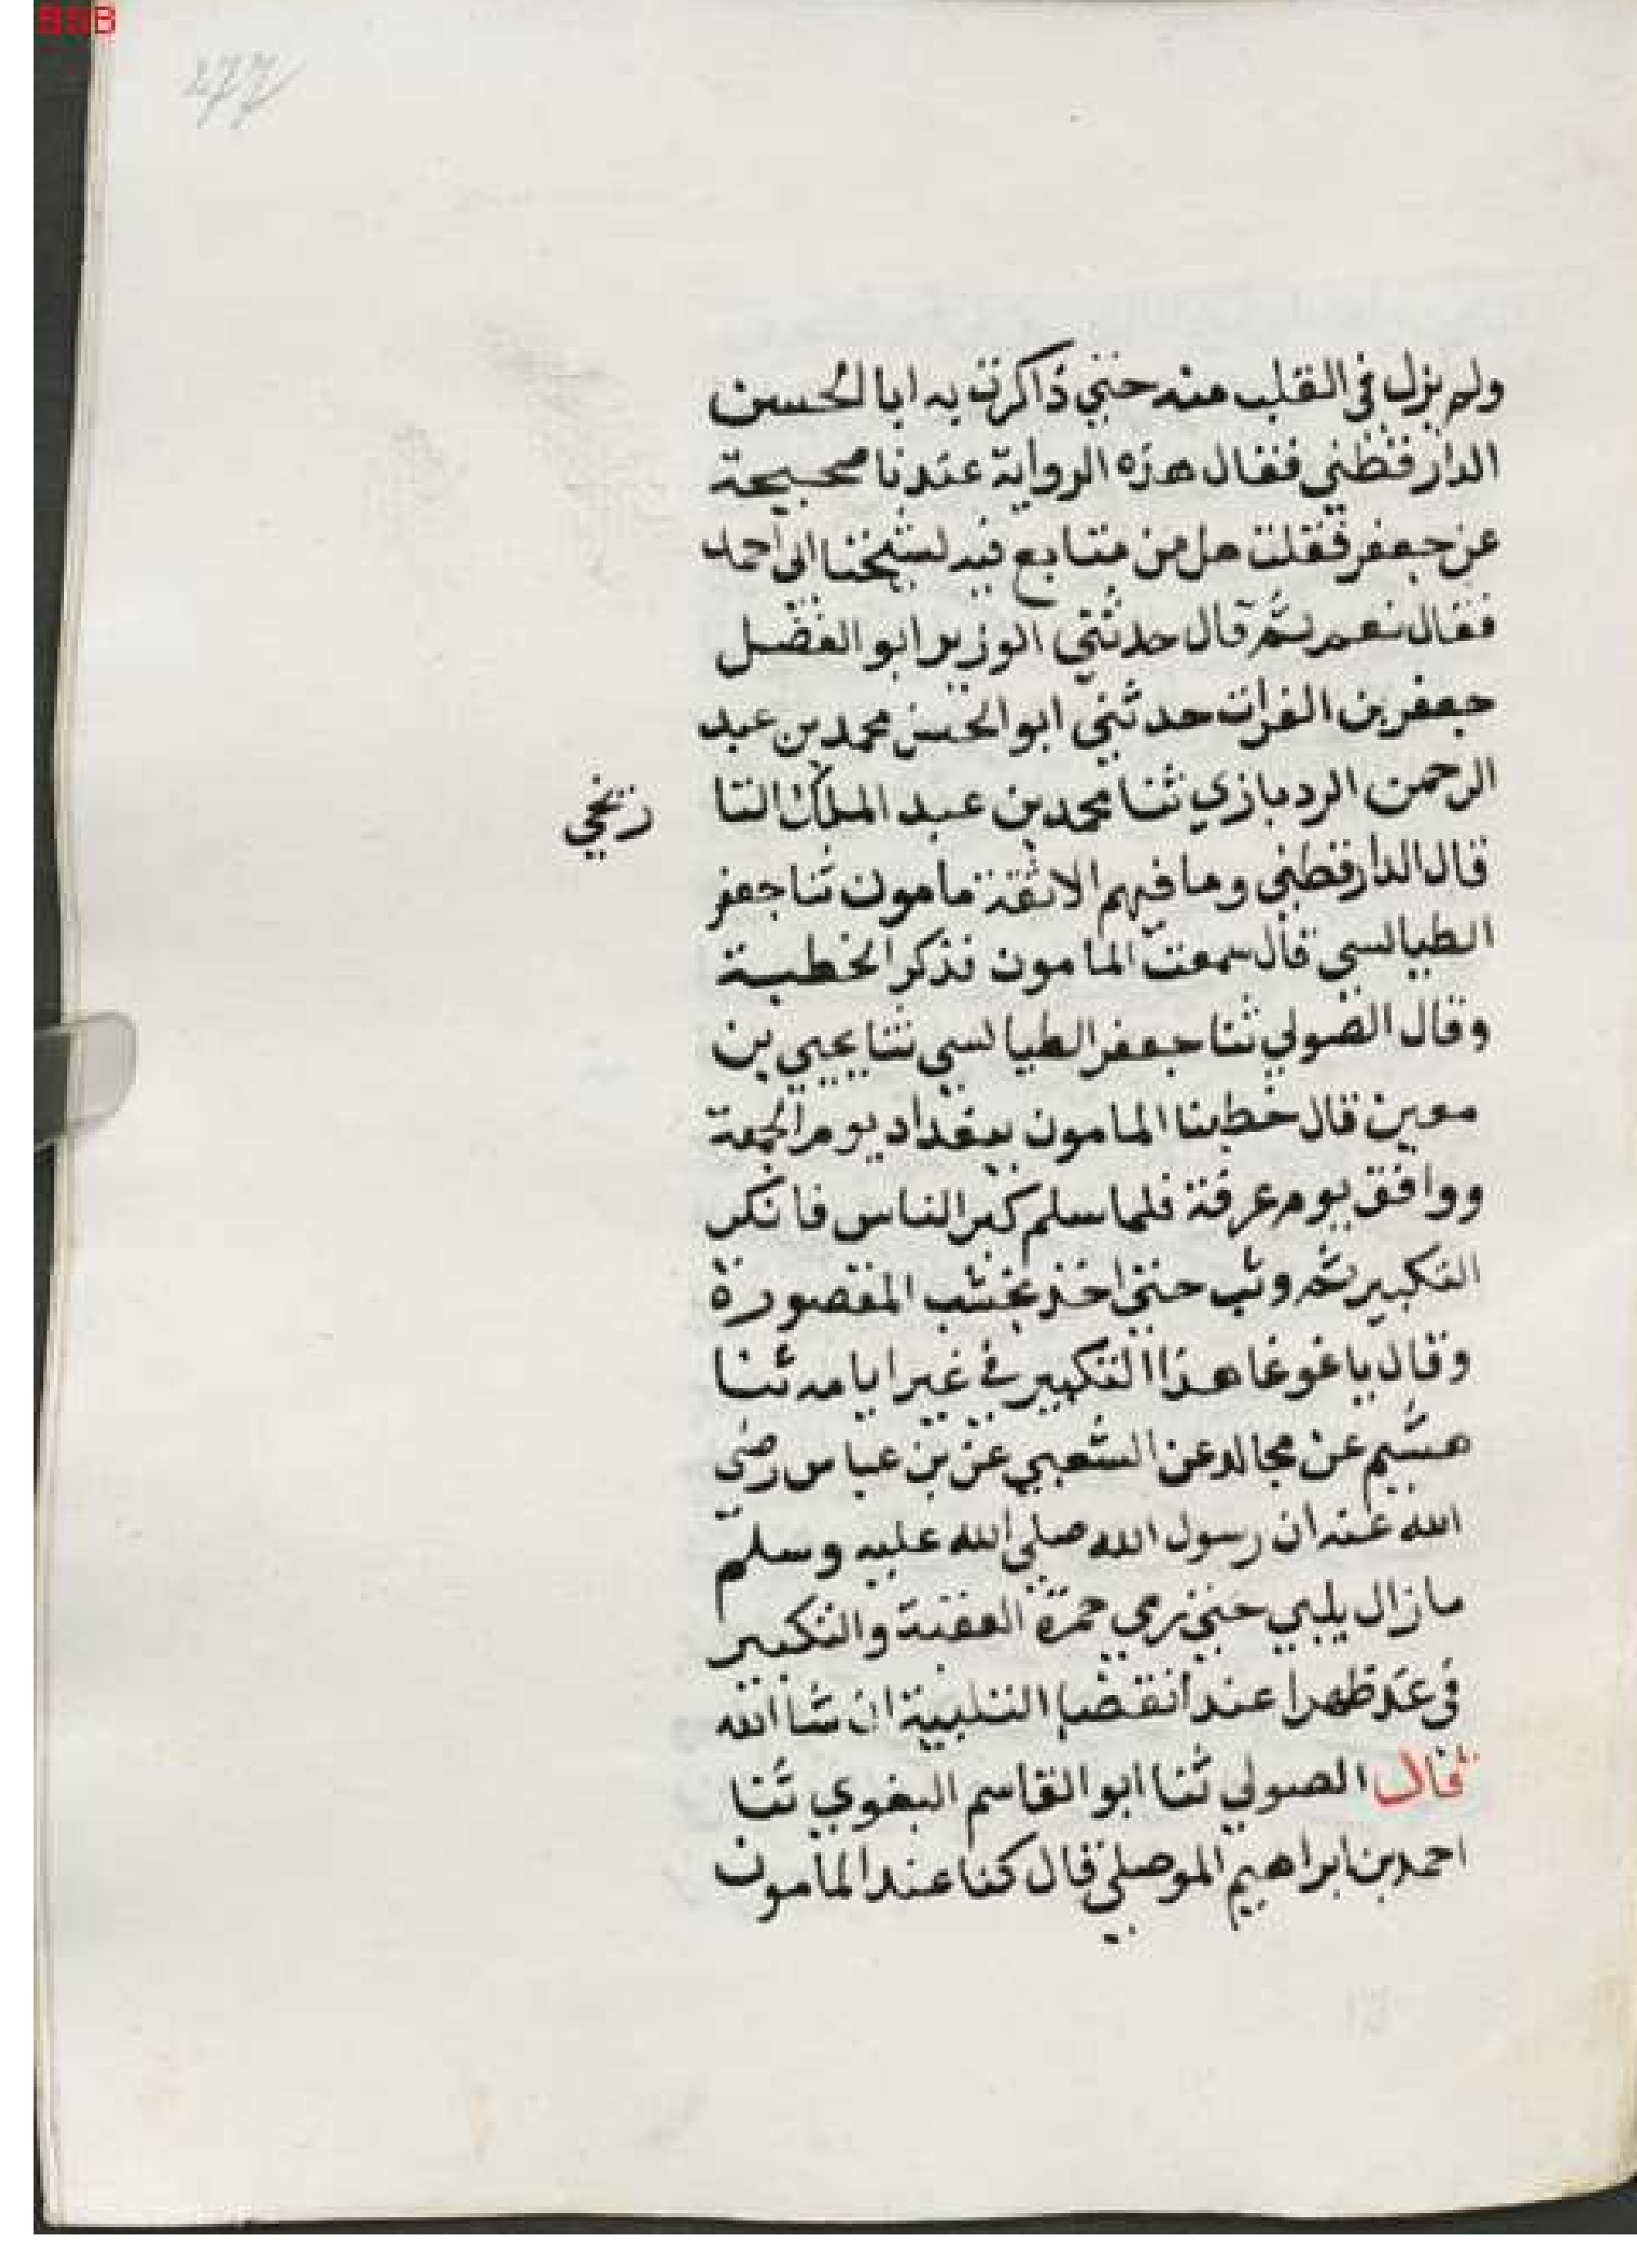 277
ولم يزل في القلب منه حتي ذاكرت به ابا الحسن
الدارقطني فقال هذه الرواية عندنا صحيحة
عن جعفر فقلت هل من متابع فيه لشيخنا ابي احمد
فقال نعم ثم قال حدثني الوزير ابو الفضل
جعفر بن الفرات حدثني ابو الحسن محمد بن عبد
الرحمن الردبازي ثنا محمد بن عبد الملك التا
ريخي
قال الدارقطني وما فيهم الا ثقة مامون ثنا جعفر
الطيالسي قال سمعت المامون فذكر الخطبة
وقال الصولي ثنا جعفر الطيالسي ثنا يحيي بن
معين قال خطبنا المامون ببغداد يوم الجمعة
ووافق يوم عرفة فلما سلم كبر الناس فانكر
التكبير ثم وثب حتي اخذ بخشب المقصورة
وقال يا غوغا هذا التكبير في غير ايامه ثنا
هشيم عن مجالد عن الشعبي عن بن عباس رضي
الله عنه ان رسول الله صلي الله عليه وسلم
ما زال يلبي حتي رمي جمرة العقبة والتكبير
في غد ظهرا عند انقضا التلبية ان شا الله
قال الصولي ثنا ابو القاسم البغوي ثنا
احمد بن ابراهيم الموصلي قال كنا عند المامون